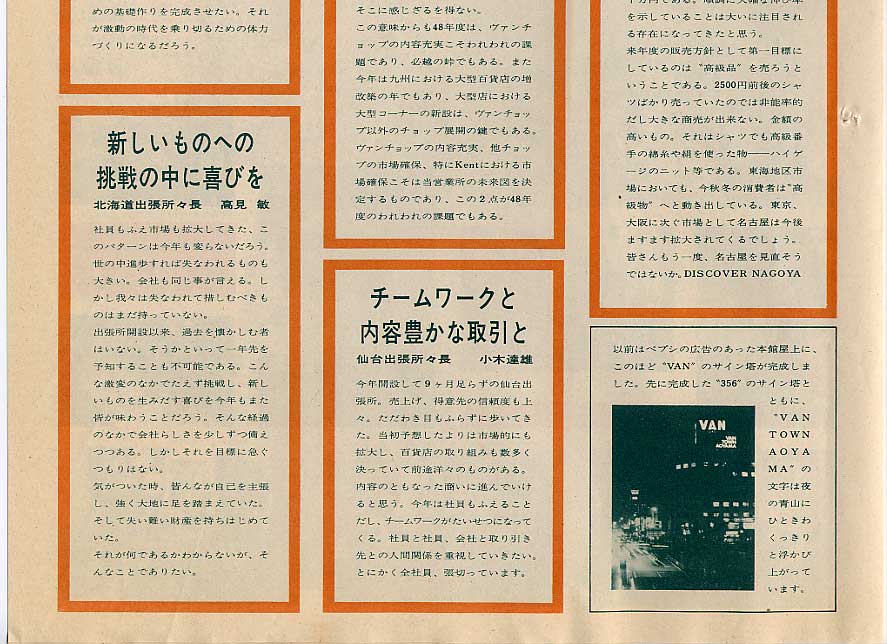 めの基礎作りを完成させたい。それ
が激動の時代を乗り切るための体力
づくりになるだろう。
新しいものへの
挑戦の中に喜びを
北海道出張所々長　高見　敏
社員もふえ市場も拡大してきた、こ
のパターンは今年も変らないだろう。
世の中進歩すれば失なわれるものも
大きい。会社も同じ事が言える。し
かし我々は失なわれて惜しむべきも
のはまだ持っていない。
出張所開設以来、過去を懐かしむ者
はいない。そうかといって一年先を
予知することも不可能である。こん
な激変のなかでたえず挑戦し、新し
いものを生みだす喜びを今年もまた
皆が味わうことだろう。そんな経過
のなかで会社らしさを少しずつ備え
つつある。しかしそれを目標に急ぐ
つもりはない。
気がついた時、皆んなが自己を主張
し、強く大地に足を踏まえていた。
そして失い難い財産を持ちはじめて
いた。
それが何であるかわからないが、そ
んなことでありたい。
そこに感じざるを得ない。
この意味からも48年度は、ヴァンチ
ョップの内容充実こそわれわれの課
題であり、必越の峠でもある。また
今年は九州における大型百貨店の増
改築の年でもあり、大型店における
大型コーナーの新設は、ヴァンチョッ
プ以外のチョップ展開の鍵でもある。
ヴァンチョップの内容充実、他チョッ
プの市場確保、特にKentにおける市
場確保こそは当営業所の未来図を決
定するものであり、この2点が48年
度のわれわれの課題でもある。
チームワークと
内容豊かな取引と
仙台出張所々長　小木達雄
今年開設して9ヶ月足らずの仙台出
張所。売上げ、得意先の信頼度も上
々。ただわき目もふらずに歩いてき
た。当初予想したよりは市場的にも
拡大し、百貨店の取り組みも数多く
決っていて前途洋々のものがある。
内容のともなった商いに進んでいけ
ると思う。今年は社員もふえること
だし、チームワークがたいせつになって
くる。社員と社員、会社と取り引き
先との人間関係を重視していきたい。
とにかく全社員、張切っています。
を示していることは大いに注目され
る存在になってきたと思う。
来年度の販売方針として第一目標に
しているのは〝高級品〟を売ろうと
いうことである。2500円前後のシャ
ツばかり売っていたのでは非能率的
だし大きな商売が出来ない。金額の
高いもの。それはシャツでも高級番
手の綿糸や絹を使った物──ハイゲ
ージのニット等である。東海地区市
場においても、今秋冬の消費者は〝高
級物〟へと動き出している。東京、
大阪に次ぐ市場として名古屋は今後
ますます拡大されてくるでしょう。
皆さんもう一度、名古屋を見直そう
ではないか。DISCOVER NAGOYA
以前はペプシの広告のあった本館屋上に、
このほど〝VAN〟のサイン塔が完成しま
した。先に完成した〝356〟のサイン塔と
ともに、
〝VAN
TOWN
AOYA
MA〟の
文字は夜
の青山に
ひときわ
くっきり
と浮かび
上がって
います。
VAN
VAN
TOWN
AOYAMA